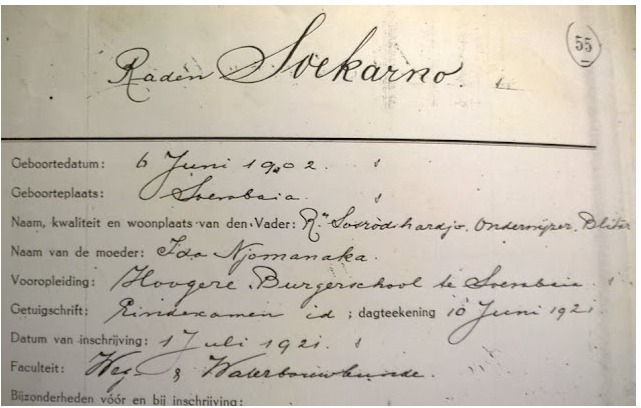 55
Raden Soekarno.
Geboortedatum: 6 Juni 1902.
Geboorteplaats: Soerabaia
Naam, kwaliteit en woonplaats van den Vader: Rn Sosrodihardjo, Onderwijzer, Blitar
Naam van de moeder: Ida Njomanaka.
Vooropleiding: Hoogere Burgerschool te Soerabaia
Getuigschrift: Eindexamen id ; dagteekening 10 Juni 1921
Datum van inschrijving: 1 Juli 1921.
Faculteit: Weg & Waterbouwkunde.
Bijzonderheden vóór en bij inschrijving: